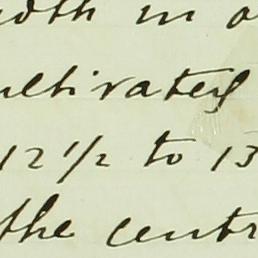 width in o
ultivated
12 1/2 to 13
the centr